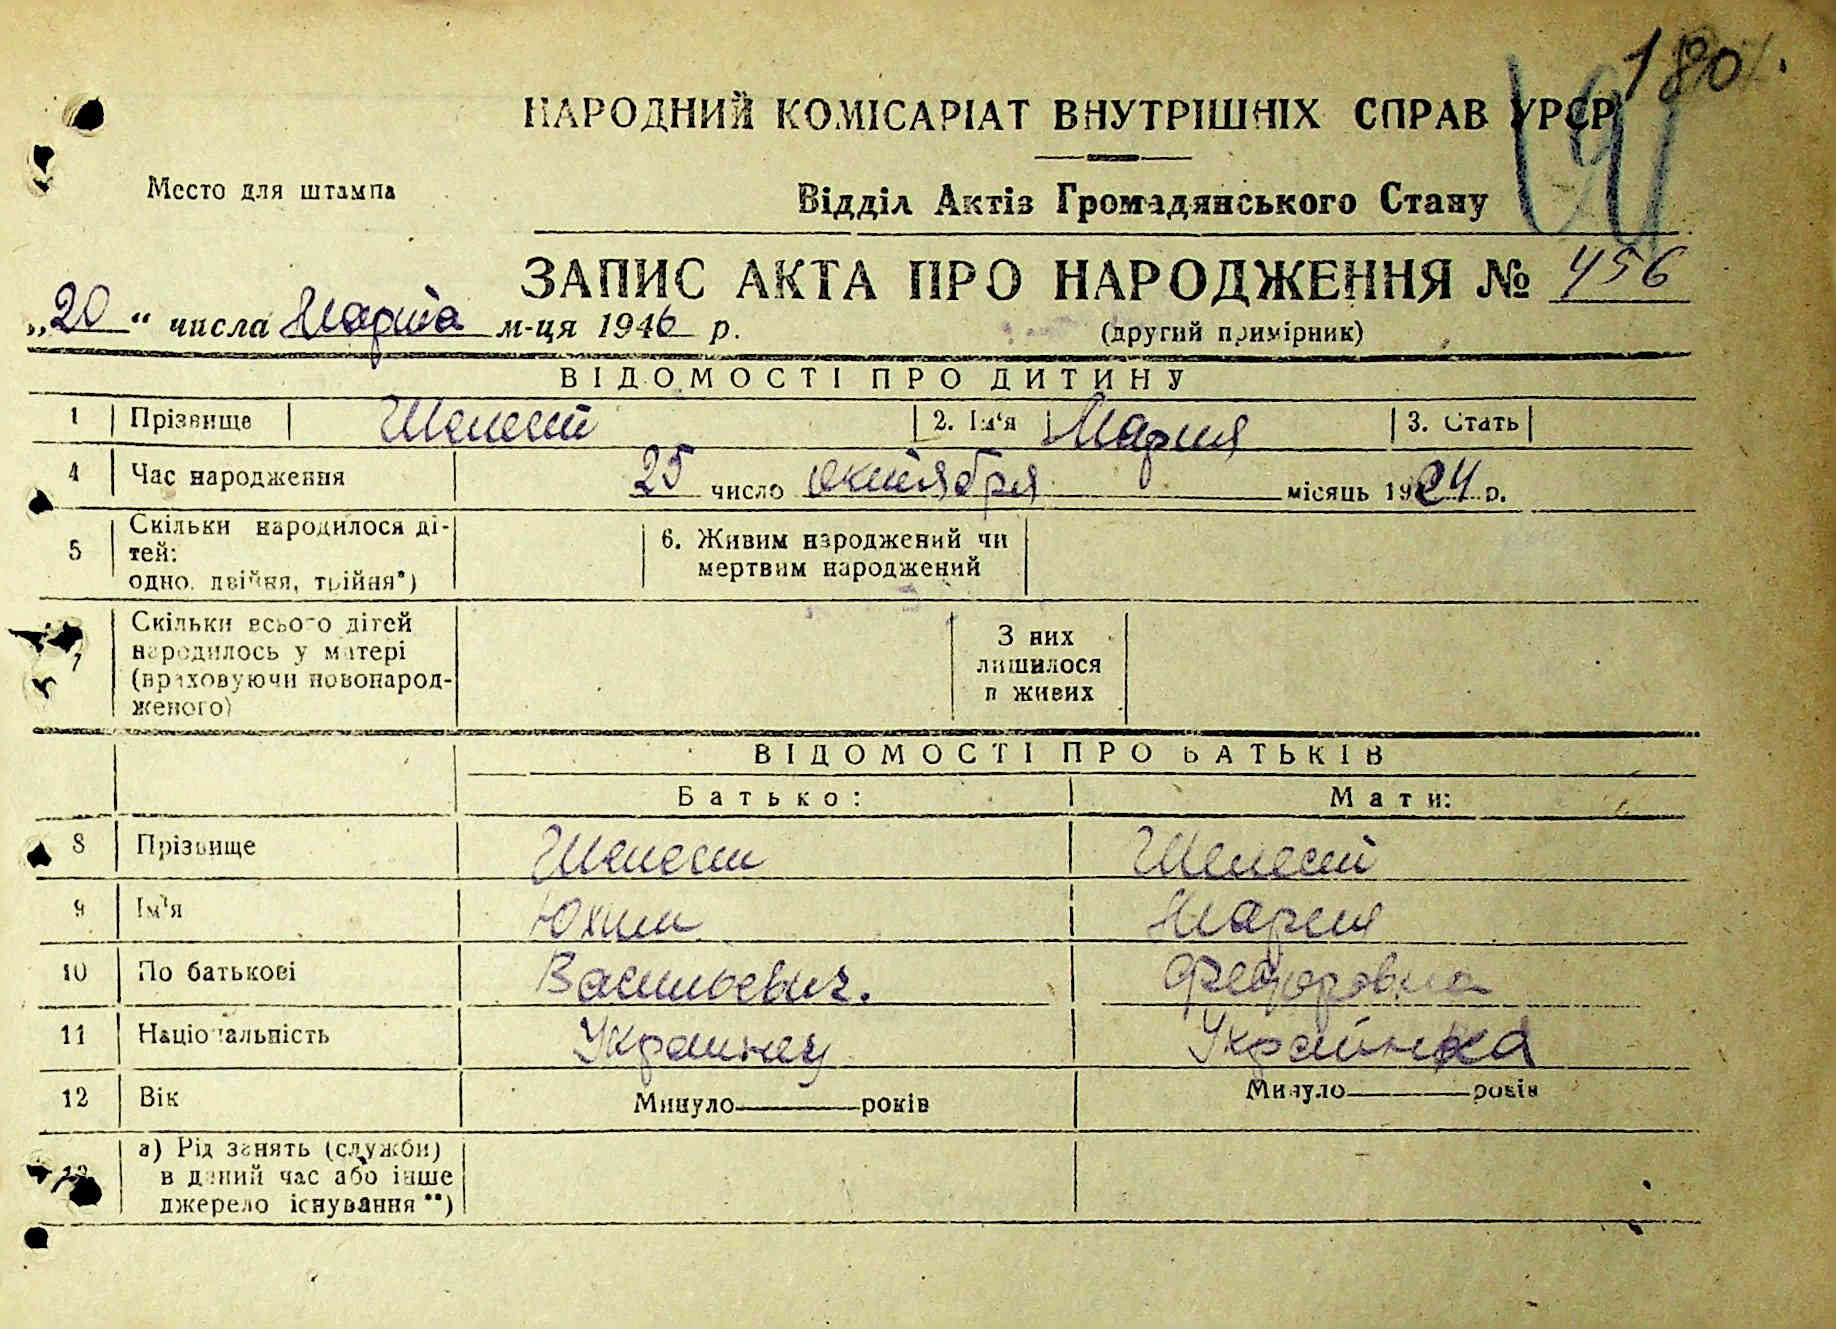 180.
НАРОДНИЙ КОМІСАРІАТ ВНУТРІШНІХ СПРАВ УРСР
Место для штампа
Відділ Актів Громадянського Стану
ЗАПИС АКТА ПРО НАРОДЖЕННЯ № 456
„20“ числа Марта м-ця 1946 р.
(другий примірник)
ВІДОМОСТІ ПРО ДИТИНУ
1 Прізвище Шелест 2. Ім'я Мария 3. Стать
4 Час народження 25 число октября місяць 1924 р.
5 Скільки народилося ді-
тей:
одно, двійня, трійня*)
6. Живим народжений чи
мертвим народжений
7 Скільки всього дітей
народилось у матері
(враховуючи новонарод-
женого)
З них
лишилося
в живих
ВІДОМОСТІ ПРО БАТЬКІВ
Батько: Мати:
8 Прізвище Шелест Шелест
9 Ім'я Юхим Мария
10 По батькові Васильевич. Федоровна
11 Національність Украинец Украинка
12 Вік Минуло років Минуло років
13 а) Рід занять (служби)
в даний час або інше
джерело існування **)